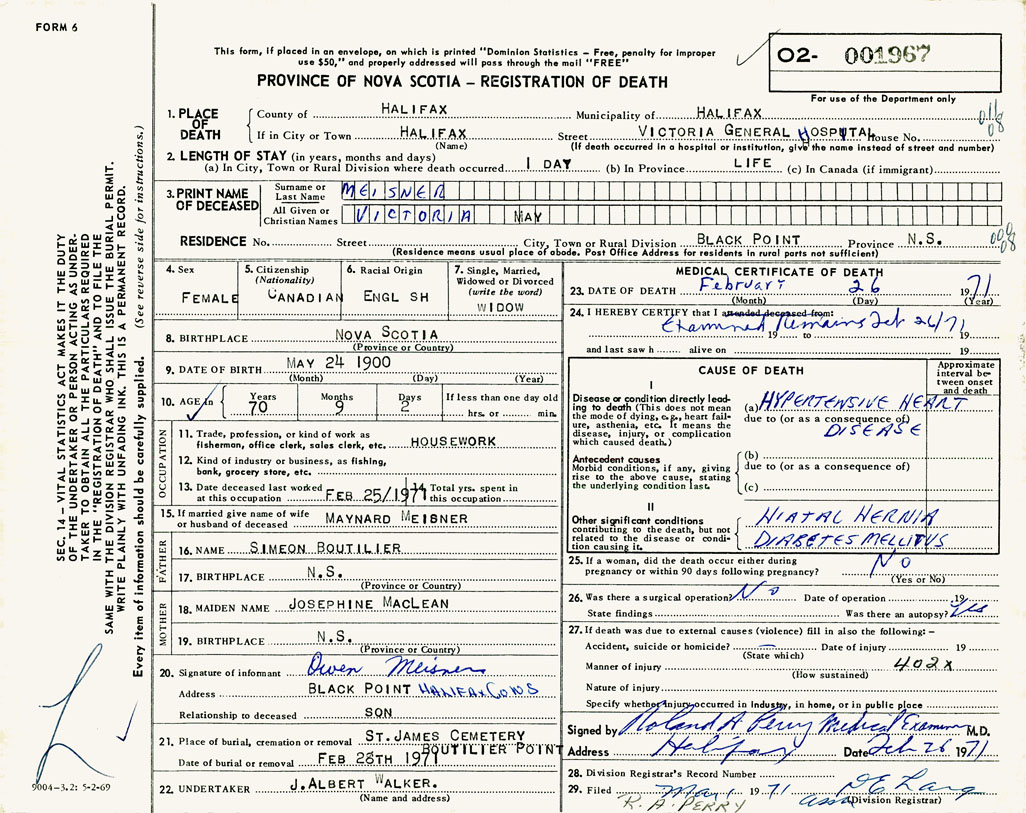 FORM 6
This form, if placed in an envelope, on which is printed "Dominion Statistics – Free, penalty for improper
use $50," and properly addressed will pass through the mail "FREE"
PROVINCE OF NOVA SCOTIA – REGISTRATION OF DEATH
O2- 001967
For use of the Department only
1. PLACE OF DEATH
County of HALIFAX Municipality of HALIFAX
If in City or Town HALIFAX Street VICTORIA GENERAL HOSPITAL House No.
(Name) (If death occurred in a hospital or institution, give the name instead of street and number)
2. LENGTH OF STAY (in years, months and days)
(a) In City, Town or Rural Division where death occurred 1 DAY (b) In Province LIFE (c) In Canada (if immigrant)
3. PRINT NAME OF DECEASED
Surname or Last Name MEISNER
All Given or Christian Names VICTORIA MAY
RESIDENCE No. Street City, Town or Rural Division BLACK POINT Province N.S.
(Residence means usual place of abode. Post Office Address for residents in rural parts not sufficient)
4. Sex
FEMALE
5. Citizenship
(Nationality)
CANADIAN
6. Racial Origin
ENGL SH
7. Single, Married,
Widowed or Divorced
(write the word)
WIDOW
8. BIRTHPLACE NOVA SCOTIA
(Province or Country)
9. DATE OF BIRTH MAY 24 1900
(Month) (Day) (Year)
10. AGE in Years 70 Months 9 Days 2 If less than one day old
hrs. or min.
OCCUPATION
11. Trade, profession, or kind of work as
fisherman, office clerk, sales clerk, etc. HOUSEWORK
12. Kind of industry or business, as fishing,
bank, grocery store, etc.
13. Date deceased last worked
at this occupation FEB 25/1971
14 Total yrs. spent in
this occupation
15. If married give name of wife
or husband of deceased MAYNARD MEISNER
FATHER
16. NAME SIMEON BOUTILIER
17. BIRTHPLACE N.S.
(Province or Country)
MOTHER
18. MAIDEN NAME JOSEPHINE MACLEAN
19. BIRTHPLACE N.S.
(Province or Country)
20. Signature of informant Owen Meisner
Address BLACK POINT HALIFAX CO NS
Relationship to deceased SON
21. Place of burial, cremation or removal ST. JAMES CEMETERY
BOUTILIER POINT
Date of burial or removal FEB 28TH 1971
22. UNDERTAKER J. ALBERT WALKER.
(Name and address)
MEDICAL CERTIFICATE OF DEATH
23. DATE OF DEATH February 26 1971
(Month) (Day) (Year)
24. I HEREBY CERTIFY that I attended deceased from:
Examined Remains Feb 26/71
19 to 19
and last saw h alive on 19
CAUSE OF DEATH
Approximate
interval be-
tween onset
and death
I
Disease or condition directly lead-
ing to death (This does not mean
the mode of dying, e.g., heart fail-
ure, asthenia, etc. It means the
disease, injury, or complication
which caused death.)
(a) HYPERTENSIVE HEART
due to (or as a consequence of)
DISEASE
Antecedent causes
Morbid conditions, if any, giving
rise to the above cause, stating
the underlying condition last.
(b)
due to (or as a consequence of)
(c)
II
Other significant conditions
contributing to the death, but not
related to the disease or condi-
tion causing it.
HIATAL HERNIA
DIABETES MELLITUS
25. If a woman, did the death occur either during
pregnancy or within 90 days following pregnancy? No
(Yes or No)
26. Was there a surgical operation? No Date of operation ,19
State findings Was there an autopsy? Yes
27. If death was due to external causes (violence) fill in also the following: –
Accident, suicide or homicide? Date of injury 19
(State which)
Manner of injury 402X
(How sustained)
Nature of injury
Specify whether injury occurred in Industry, in home, or in public place
Signed by Roland A Perry Medical Examiner M.D.
Address Halifax Date Feb 26 1971
28. Division Registrar's Record Number
29. Filed Mar 1 1971
(Division Registrar)
R. A. PERRY
SEC. 14 – VITAL STATISTICS ACT MAKES IT THE DUTY
OF THE UNDERTAKER OR PERSON ACTING AS UNDER-
TAKER TO OBTAIN ALL THE PARTICULARS REQUIRED
IN THE "REGISTRATION OF DEATH" AND TO FILE THE
SAME WITH THE DIVISION REGISTRAR WHO SHALL ISSUE THE BURIAL PERMIT.
WRITE PLAINLY WITH UNFADING INK. THIS IS A PERMANENT RECORD.
Every item of information should be carefully supplied. (See reverse side for instructions.)
9004-3.2: 5-2-69